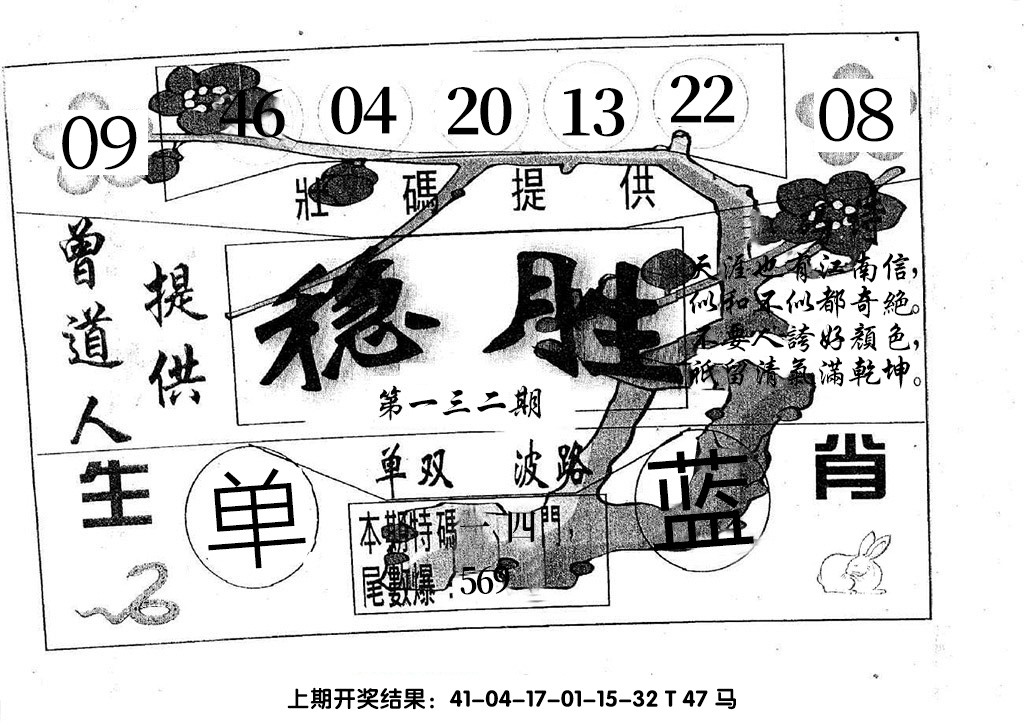 09 46 04 20 13 22 08
壯碼提供
曾道人
提供
稳胜
第一三二期
天涯也有江南信，
似和不似都奇絕。
不要人誇好顏色，
祇留清氣滿乾坤。
单双 波路
生肖
单
蓝
本期特碼一、四門，
尾數爆：569
上期开奖结果：41-04-17-01-15-32 T 47 马